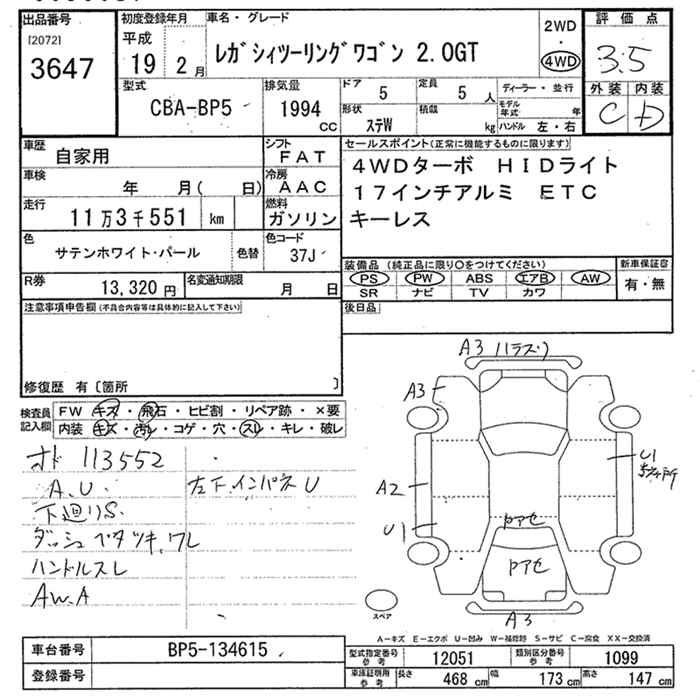 出品番号
[2072]
3647
初度登録年月
平成
19 2月
車名・グレード
レガシィツーリングワゴン 2.0GT
2WD
・
4WD
評価点
3.5
外装 内装
C D
型式
CBA-BP5
排気量
1994
CC
ドア 5
定員 5 人
形状 ステW
積載 kg
ディーラー・並行
モデル年式 年
ハンドル 左・右
車歴
自家用
車検 年 月( 日)
走行 11万3千551 km
シフト
FAT
冷房
AAC
燃料
ガソリン
色
サテンホワイト・パール
色替
色コード
37J
R券
13,320円
名変通知期限
月 日
セールスポイント(正常に機能するものに限ります)
4WDターボ HIDライト
17インチアルミ ETC
キーレス
装備品(純正品に限り○をつけてください)
PS PW ABS エアB AW
SR ナビ TV カワ
新車保証書
有・無
後日品
注意事項申告欄(不具合内容等は具体的に記入して下さい)
修復歴 有〔箇所 〕
検査員記入欄
FW キズ・飛石・ヒビ割・リペア跡・×要
内装 キズ・汚レ・コゲ・穴・スレ・キレ・破レ
オド 113552
A.U
下廻りS
ダッシュベタツキ.ワレ
ハンドルスレ
AW.A
左下.インパネU
A3
A3
A2
U1
U1
A3
スペア
A-キズ E-エクボ U-凹み W-補修跡 S-サビ C-腐食 XX-交換済
車台番号 BP5-134615
登録番号
型式指定番号 参考 12051
類別区分番号 参考 1099
車庫証明用 参考 長さ 468 cm 幅 173 cm 高さ 147 cm